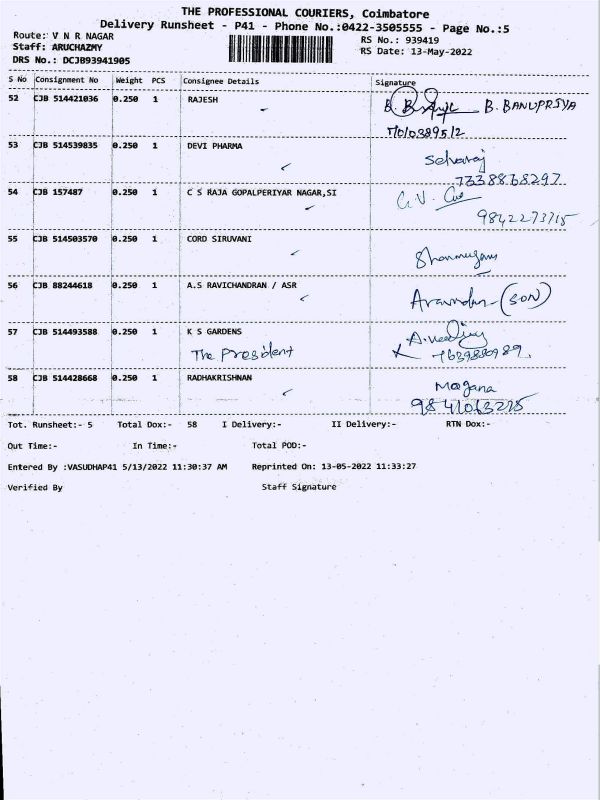 THE PROFESSIONAL COURIERS, Coimbatore
Delivery Runsheet - P41 - Phone No.:0422-3505555 - Page No.:5
Route: V N R NAGAR RS No.: 939419
Staff: ARUCHAZMY RS Date: 13-May-2022
DRS No.: DCJB93941905
S No Consignment No Weight PCS Consignee Details Signature
52 CJB 514421036 0.250 1 RAJESH B. BANUPRIYA
7010389512
53 CJB 514539835 0.250 1 DEVI PHARMA Selvaraj
7338868297
54 CJB 157487 0.250 1 C S RAJA GOPALPERIYAR NAGAR,SI G.V.
9842273715
55 CJB 514503570 0.250 1 CORD SIRUVANI Shanmugam
56 CJB 88244618 0.250 1 A.S RAVICHANDRAN / ASR Aravindan - (SON)
57 CJB 514493588 0.250 1 K S GARDENS
The President 7639880989.
58 CJB 514428668 0.250 1 RADHAKRISHNAN Megana
9841063275
Tot. Runsheet:- 5 Total Dox:- 58 I Delivery:- II Delivery:- RTN Dox:-
Out Time:- In Time:- Total POD:-
Entered By :VASUDHAP41 5/13/2022 11:30:37 AM Reprinted On: 13-05-2022 11:33:27
Verified By Staff Signature